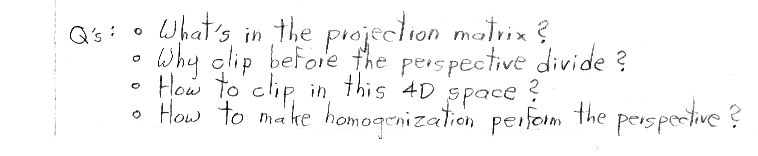 Q's: o What's in the projection matrix?
o Why clip before the perspective divide?
o How to clip in this 4D space?
o How to make homogenization perform the perspective?